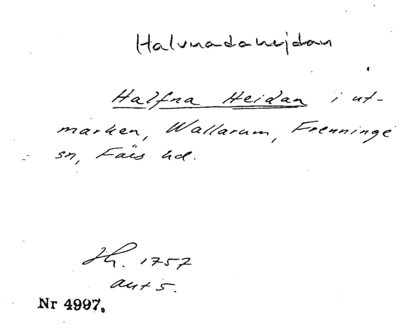 Halvnadahejdan
Halfna Heidan i ut-
marken, Wallarum, Frenninge
sn, Färs hd.
Jh. 1757
ant 5.
Nr 4997.